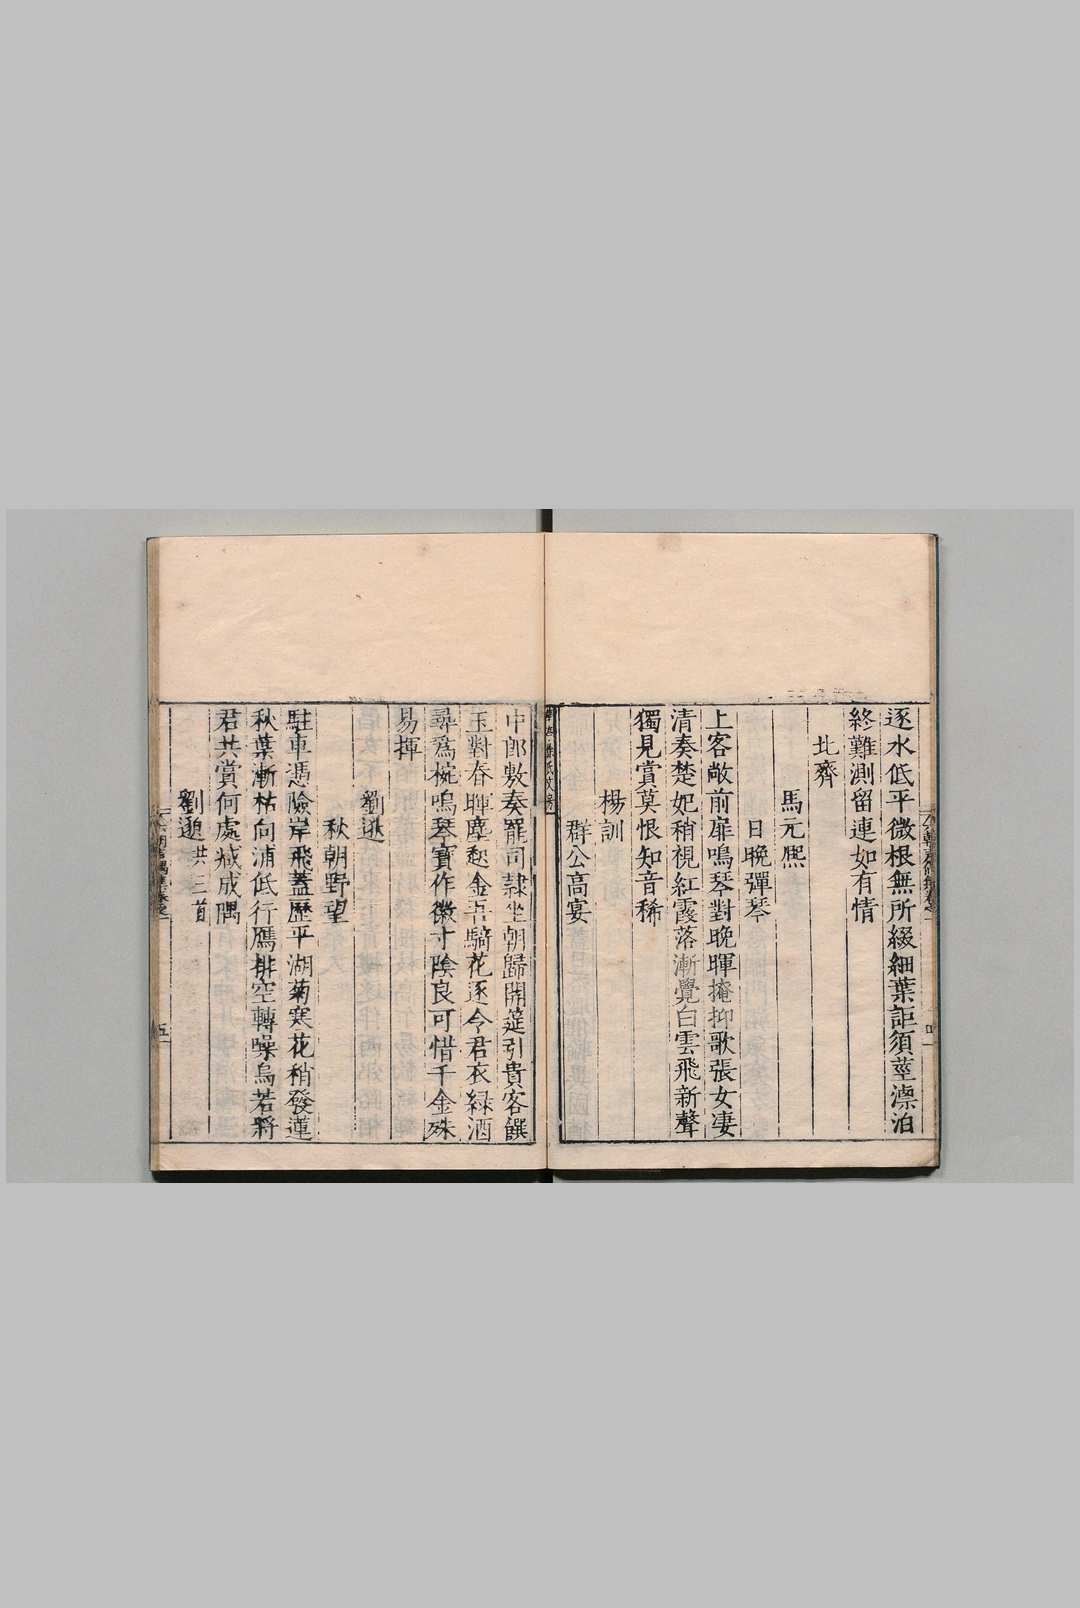 逐水低平微根無所綴細葉詎須莖漂泊
終難測留連如有情
北齊
馬元熙
日晚彈琴
上客敞前扉鳴琴對晚暉掩抑歌張女凄
清奏楚妃稍視紅霞落漸覺白雲飛新聲
獨見賞莫恨知音稀
楊訓
群公高宴
中郎敷奏罷司隷坐朝歸開筵引貴客饌
玉對春暉塵起金吾騎花逐令君衣綠酒
尋為椀鳴琴寶作徽寸陰良可惜千金殊
易揮
劉逖
秋朝野望
駐車憑險岸飛蓋歷平湖菊寒花稍發蓮
秋葉漸枯向浦低行鴈排空轉噪烏若將
君共賞何處減成隅
劉逖 共三首
五
四